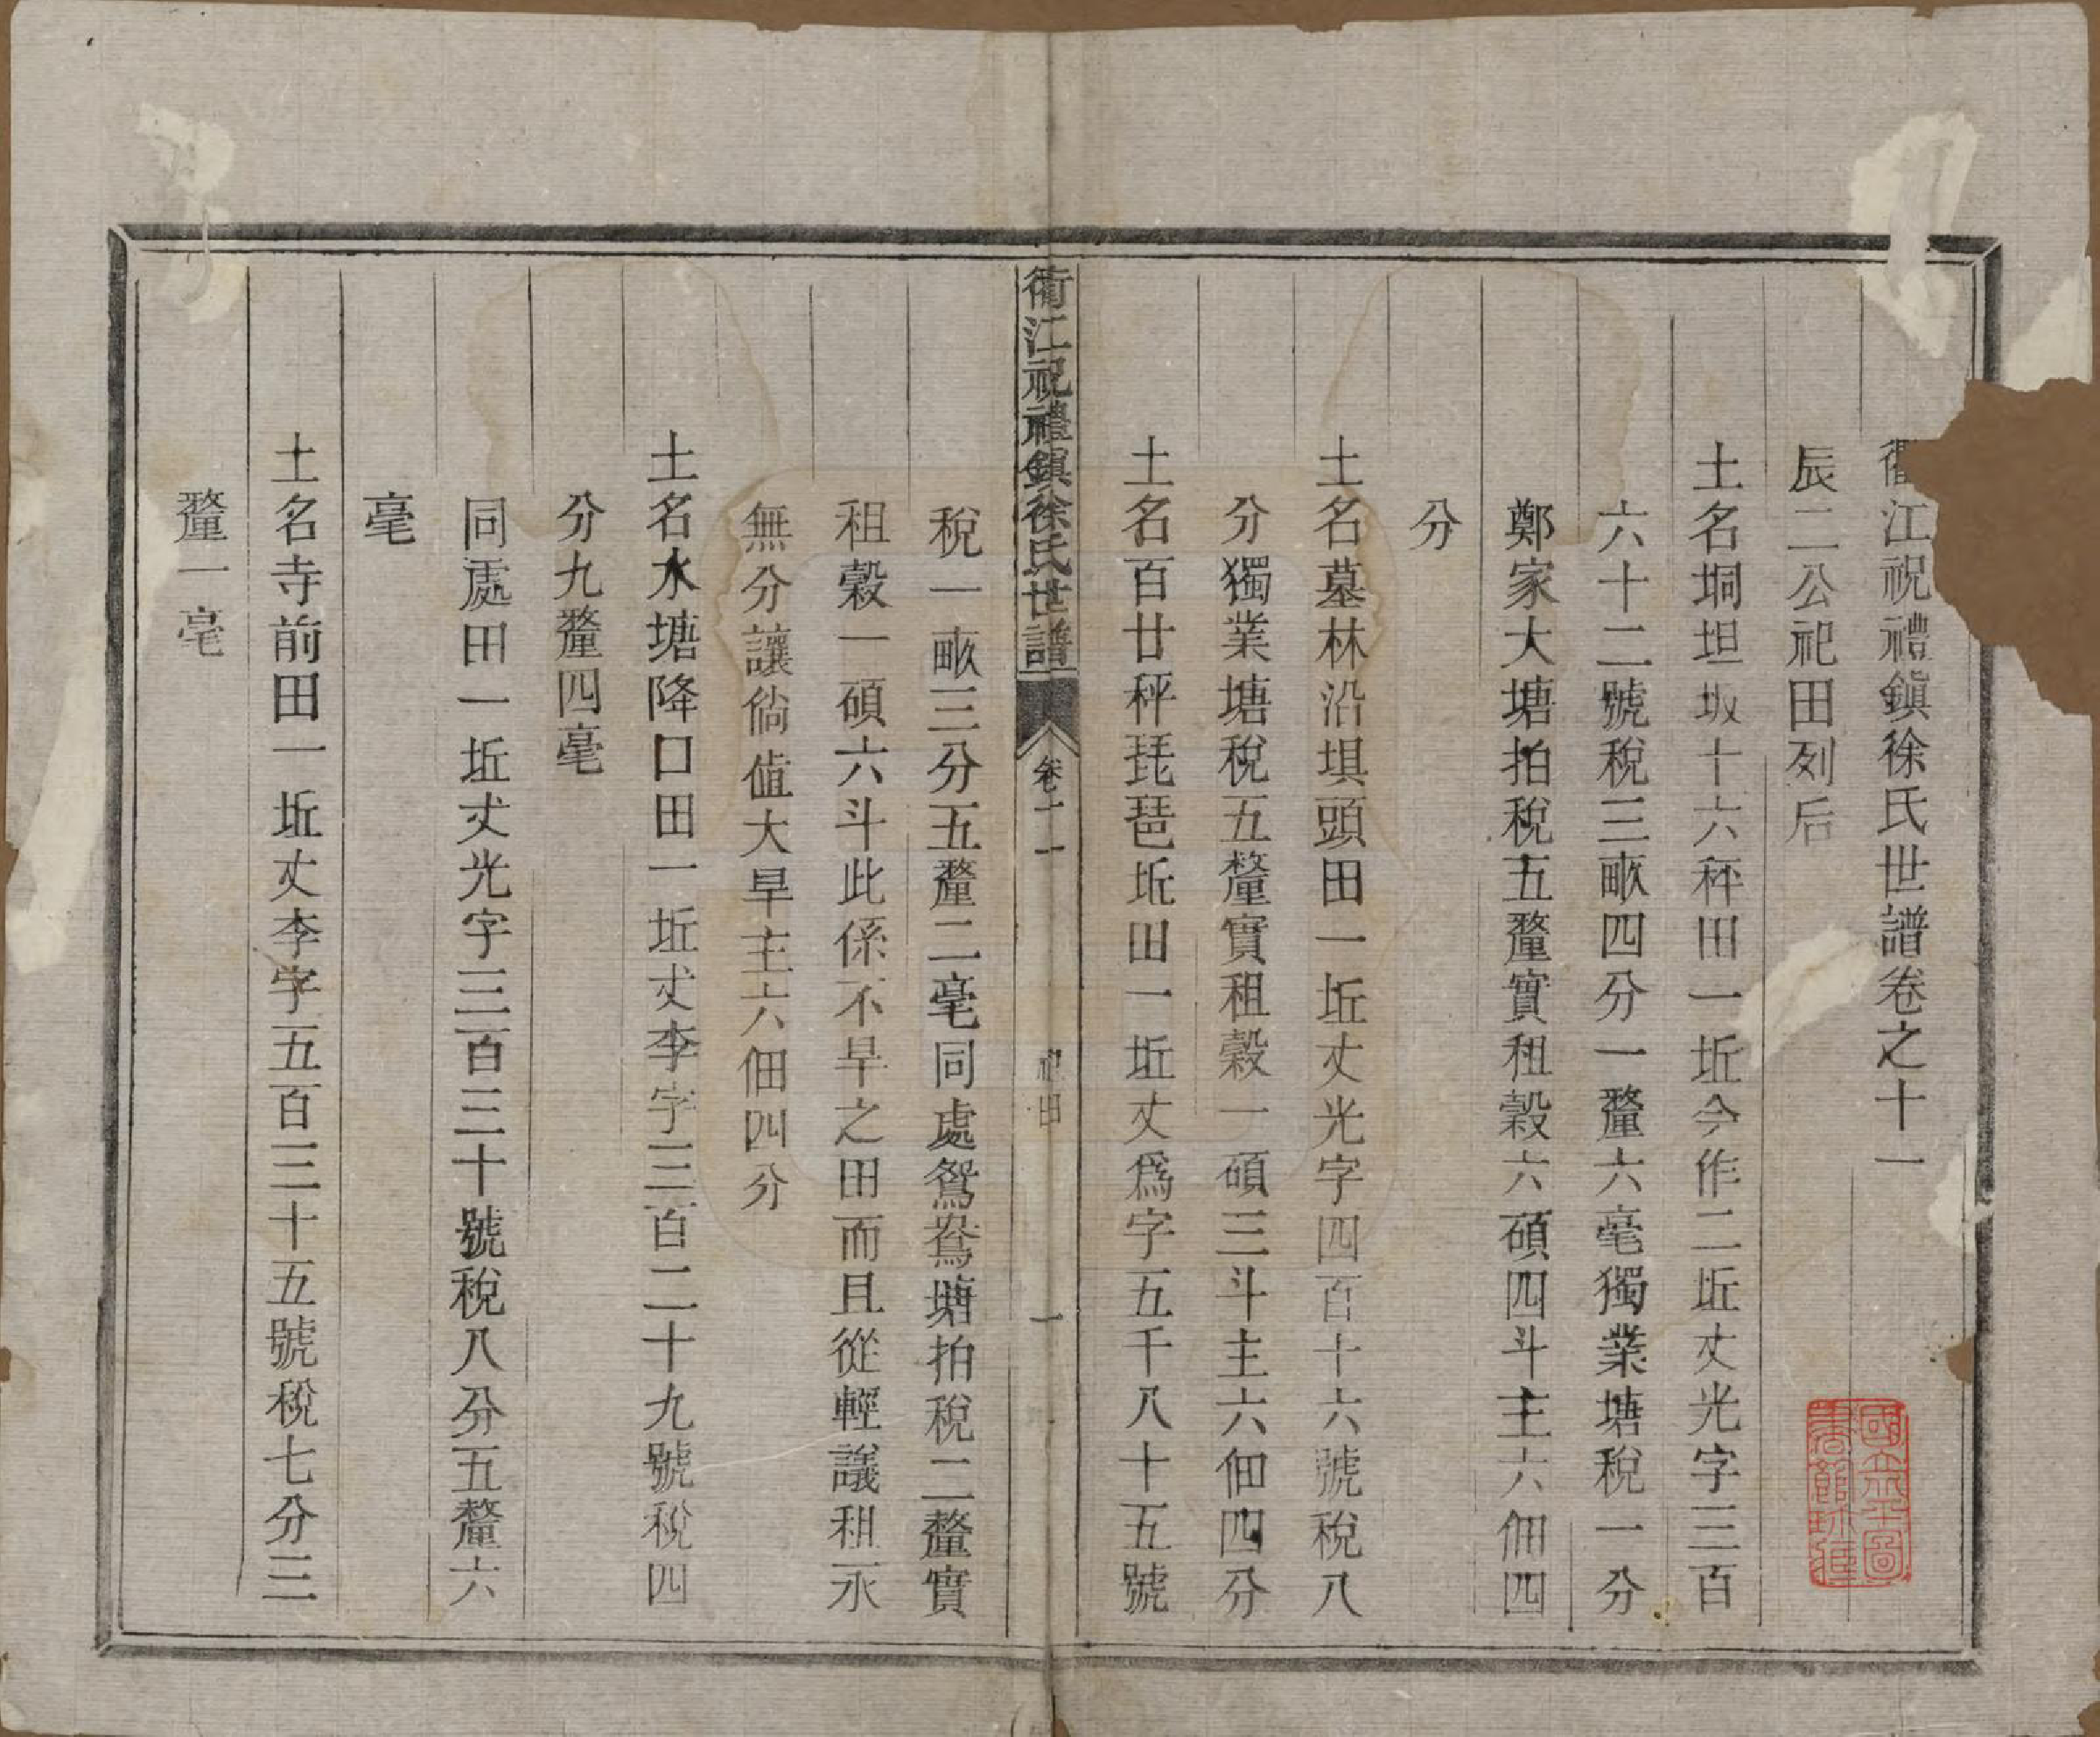 衢江祝禮鎮徐氏世譜卷之十一
辰二公祀田列后
土名垌坦坂十六秤田一坵今作二坵丈光字三百
六十二號稅三畝四分一釐六毫獨業塘稅一分
鄭家大塘拍稅五釐實租穀六碩四斗主六佃四
分
土名墓林沿埧頭田一坵丈光字四百十六號稅八
分獨業塘稅五釐實租穀一碩三斗主六佃四分
土名百廿秤琵琶坵田一坵丈爲字五千八十五號
衢江祝禮鎮徐氏世譜 卷十一 祀田 一
稅一畝三分五釐二毫同處鴛鴦塘拍稅二釐實
租穀一碩六斗此係不旱之田而且從輕議租永
無分讓倘值大旱主六佃四分
土名水塘降口田一坵丈李字三百二十九號稅四
分九釐四毫
同處田一坵丈光字三百三十號稅八分五釐六
毫
土名寺前田一坵丈李字五百三十五號稅七分三
釐一毫
國立北平圖書館珍藏